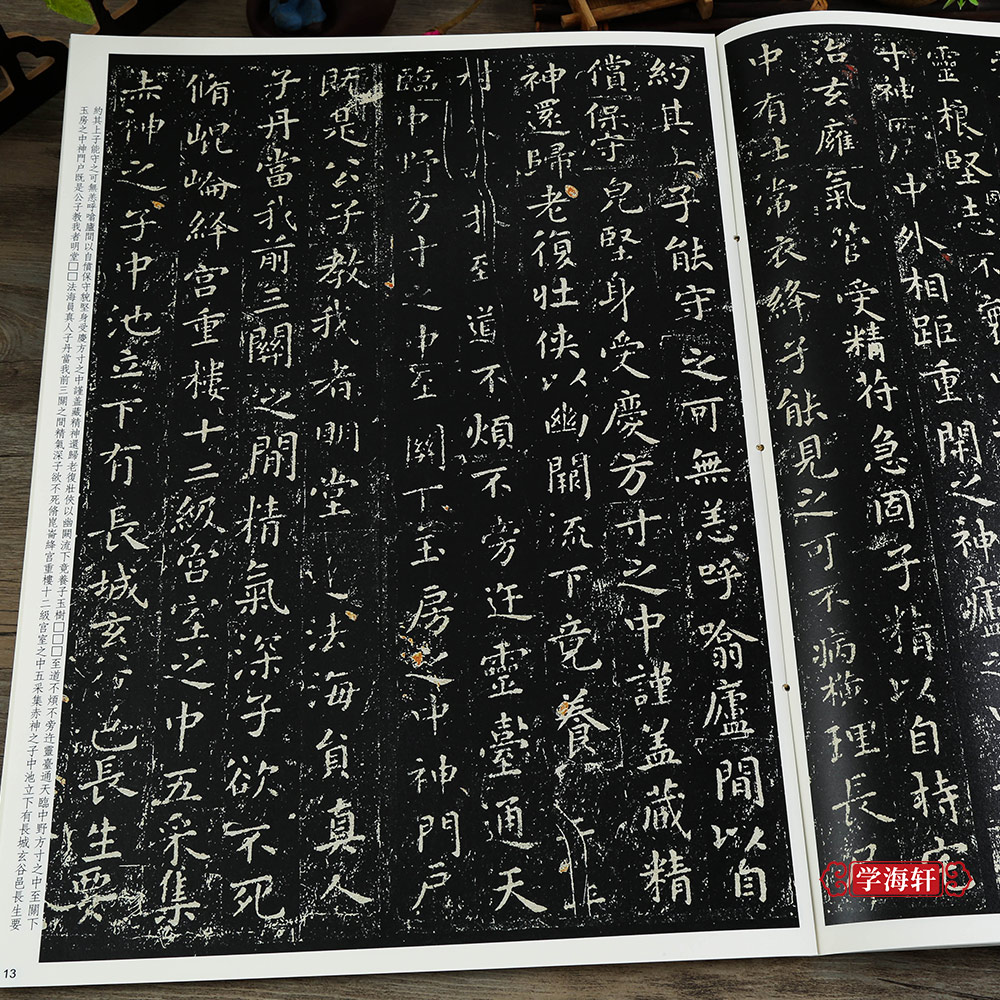 靈根堅志不
寸神所中外相距重閉之神廬之
治玄廱氣管受精符急固子精以自持宅
中有士常衣絳子能見之可不病橫理長尺
約其上子能守之可無恙呼噏廬間以自
償保守皃堅身受慶方寸之中謹蓋藏精
神還歸老復壯俠以幽闕流下竟養
扶至道不煩不旁迕靈臺通天
臨中野方寸之中至關下玉房之中神門戶
既是公子教我者明堂法海員真人
子丹當我前三關之間精氣深子欲不死
脩崐崘絳宮重樓十二級宮室之中五采集
赤神之子中池立下有長城玄谷邑長生要
約其上子能守之可無恙呼噏廬間以自償保守貌堅身受慶方寸之中謹蓋藏精神還歸老復壯俠以幽闕流下竟養子玉樹□□□至道不煩不旁迕靈臺通天臨中野方寸之中至關下
玉房之中神門户既是公子教我者明堂□□法海員真人子丹當我前三關之間精氣深子欲不死脩崑崙絳宮重樓十二級宮室之中五采集赤神之子中池立下有長城玄谷邑長生要
13
学海轩